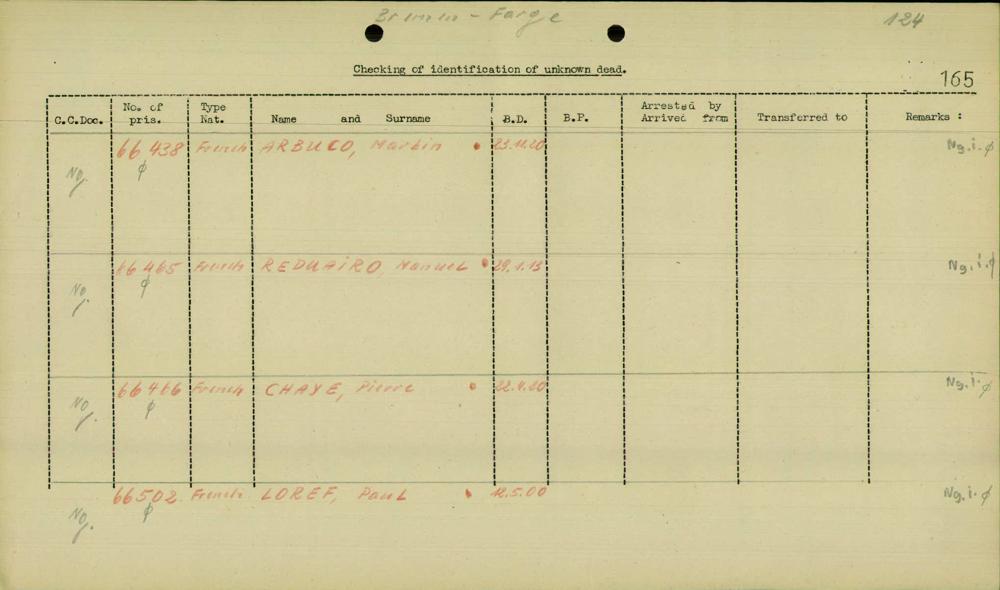 Bremen - Farge 124
Checking of identification of unknown dead.
165
C.C.Doc. No. of pris. Type Nat. Name and Surname B.D. B.P. Arrested by Arrived from Transferred to Remarks :
66 438 French ARBUCO, Martin 23.11.20 Ng.i. φ
Ng. φ
66 465 French REDUAIRO, Manuel 29.1.13 Ng.i. φ
Ng. φ
66 466 French CHAYE, Pierre 22.4.20 Ng.i. φ
Ng. φ
66502 French LOREF, Paul 12.5.00 Ng.i. φ
Ng. φ